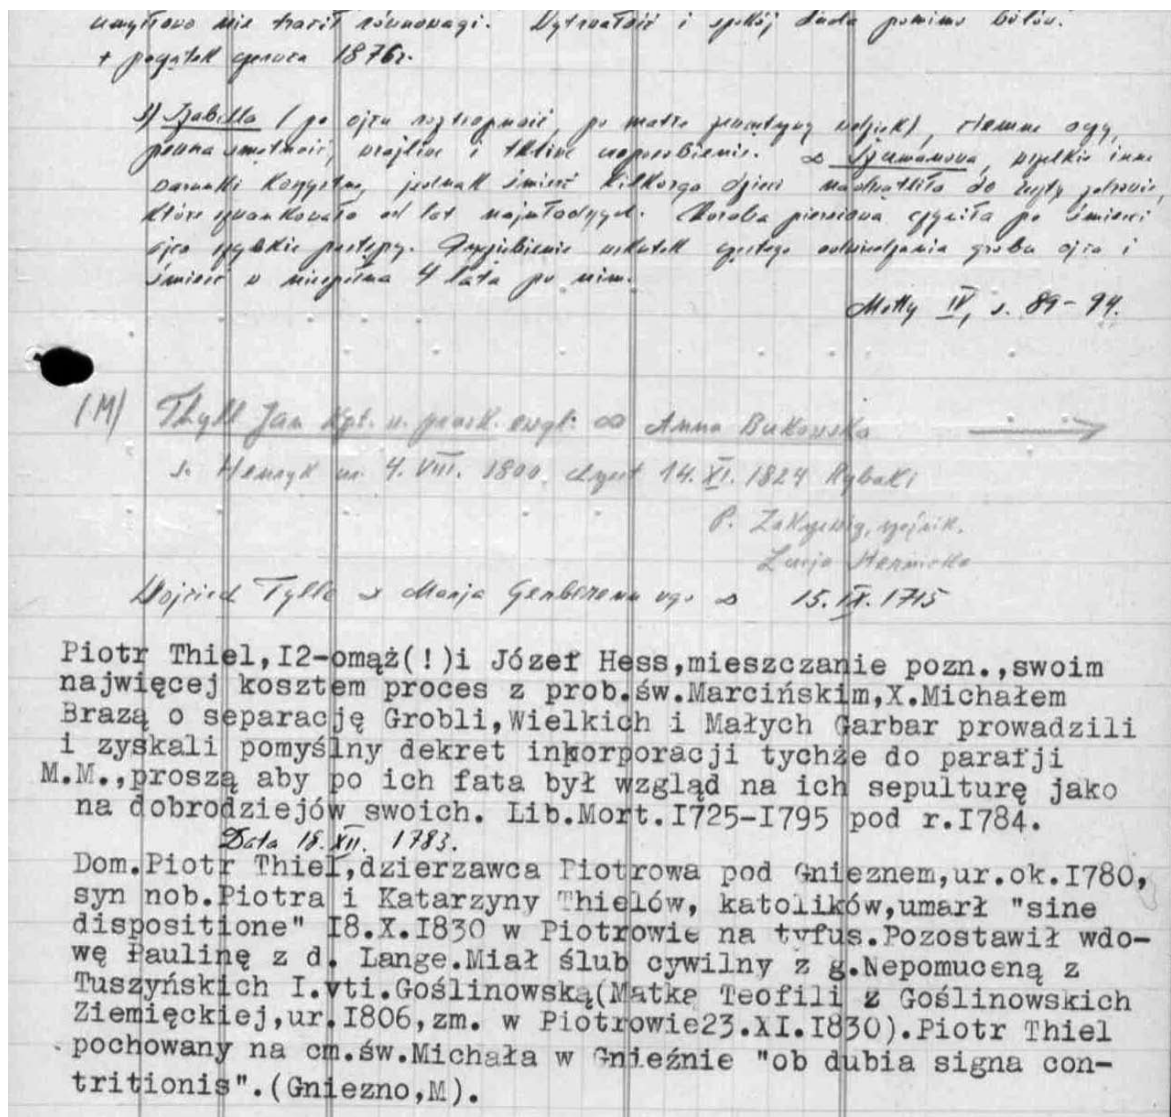 umysłowo nie tracił równowagi. Wytrwałość i spokój ducha pomimo bólów.
+ początek czerwca 1876r.
Izabella (po ojcu roztropność, po matce wdzięk), ciemne oczy,
pewna smętność, wrażliwe i tkliwe usposobienie. ∞ Szumanowa, wszelkie inne
warunki korzystne, jednak śmierć kilkorga dzieci nadwątliła do reszty zdrowie,
które szwankowało od lat najmłodszych. Choroba piersiowa czyniła po śmierci
ojca szybkie postępy. Przeziębienie wskutek częstego odwiedzania grobu ojca i
śmierć w niespełna 4 lata po nim.
Motty IV, s. 89-94.
(M) Thyll Jan Kpt. w. prusk. ∞ Anna Bukowska
s. Henryk ur. 4. VIII. 1800. chrzest 14. XI. 1824 Rybaki
P. Zakrzewicz,
Łucja
Wojciech Tylle Marja ∞ 15. IX. 1715
Piotr Thiel,I2-omąż(!)i Józef Hess,mieszczanie pozn.,swoim
najwięcej kosztem proces z prob.św.Marcińskim,X.Michałem
Brazą o separację Grobli,Wielkich i Małych Garbar prowadzili
i zyskali pomyślny dekret inkorporacji tychże do parafji
M.M.,proszą aby po ich fata był wzgląd na ich sepulturę jako
na dobrodziejów swoich. Lib.Mort.I725-I795 pod r.I784.
Data 18. XII. 1783.
Dom.Piotr Thiel,dzierzawca Piotrowa pod Gnieznem,ur.ok.I780,
syn nob.Piotra i Katarzyny Thielów, katolików,umarł "sine
dispositione" I8.X.I830 w Piotrowie na tyfus.Pozostawił wdo-
wę Paulinę z d. Lange.Miał ślub cywilny z g.Nepomuceną z
Tuszyńskich I.vti.Goślinowską(Matka Teofili z Goślinowskich
Ziemięckiej,ur.I806,zm. w Piotrowie23.XI.I830).Piotr Thiel
pochowany na cm.św.Michała w Gnieźnie "ob dubia signa con-
tritionis".(Gniezno,M).